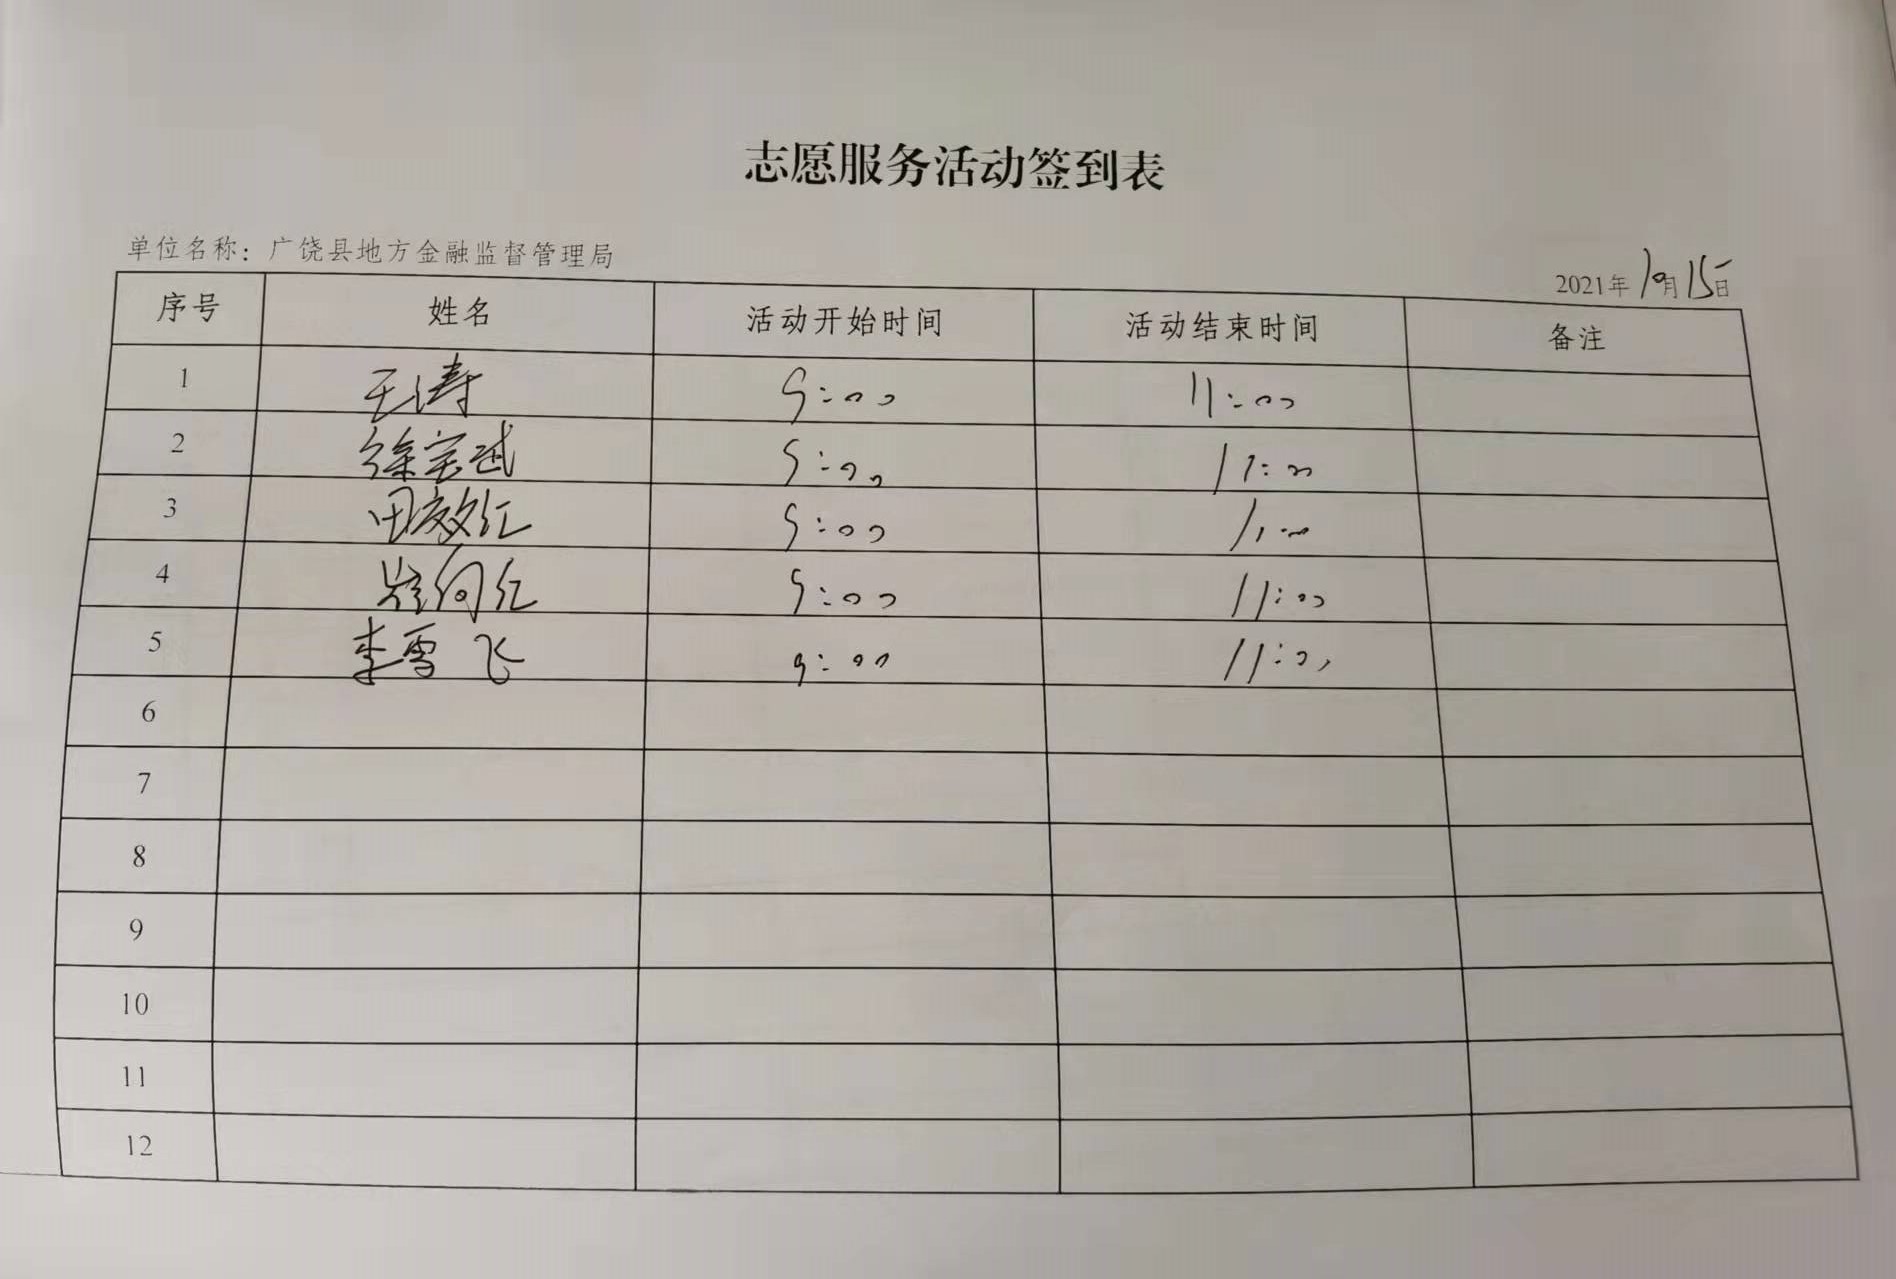 志愿服务活动签到表
单位名称：广饶县地方金融监督管理局
2021年10月15日
序号 姓名 活动开始时间 活动结束时间 备注
1 王涛 9:00 11:00
2 徐宝斌 9:00 11:00
3 田效红 9:00 11:00
4 崔向红 9:00 11:00
5 李雪飞 9:00 11:00
6
7
8
9
10
11
12